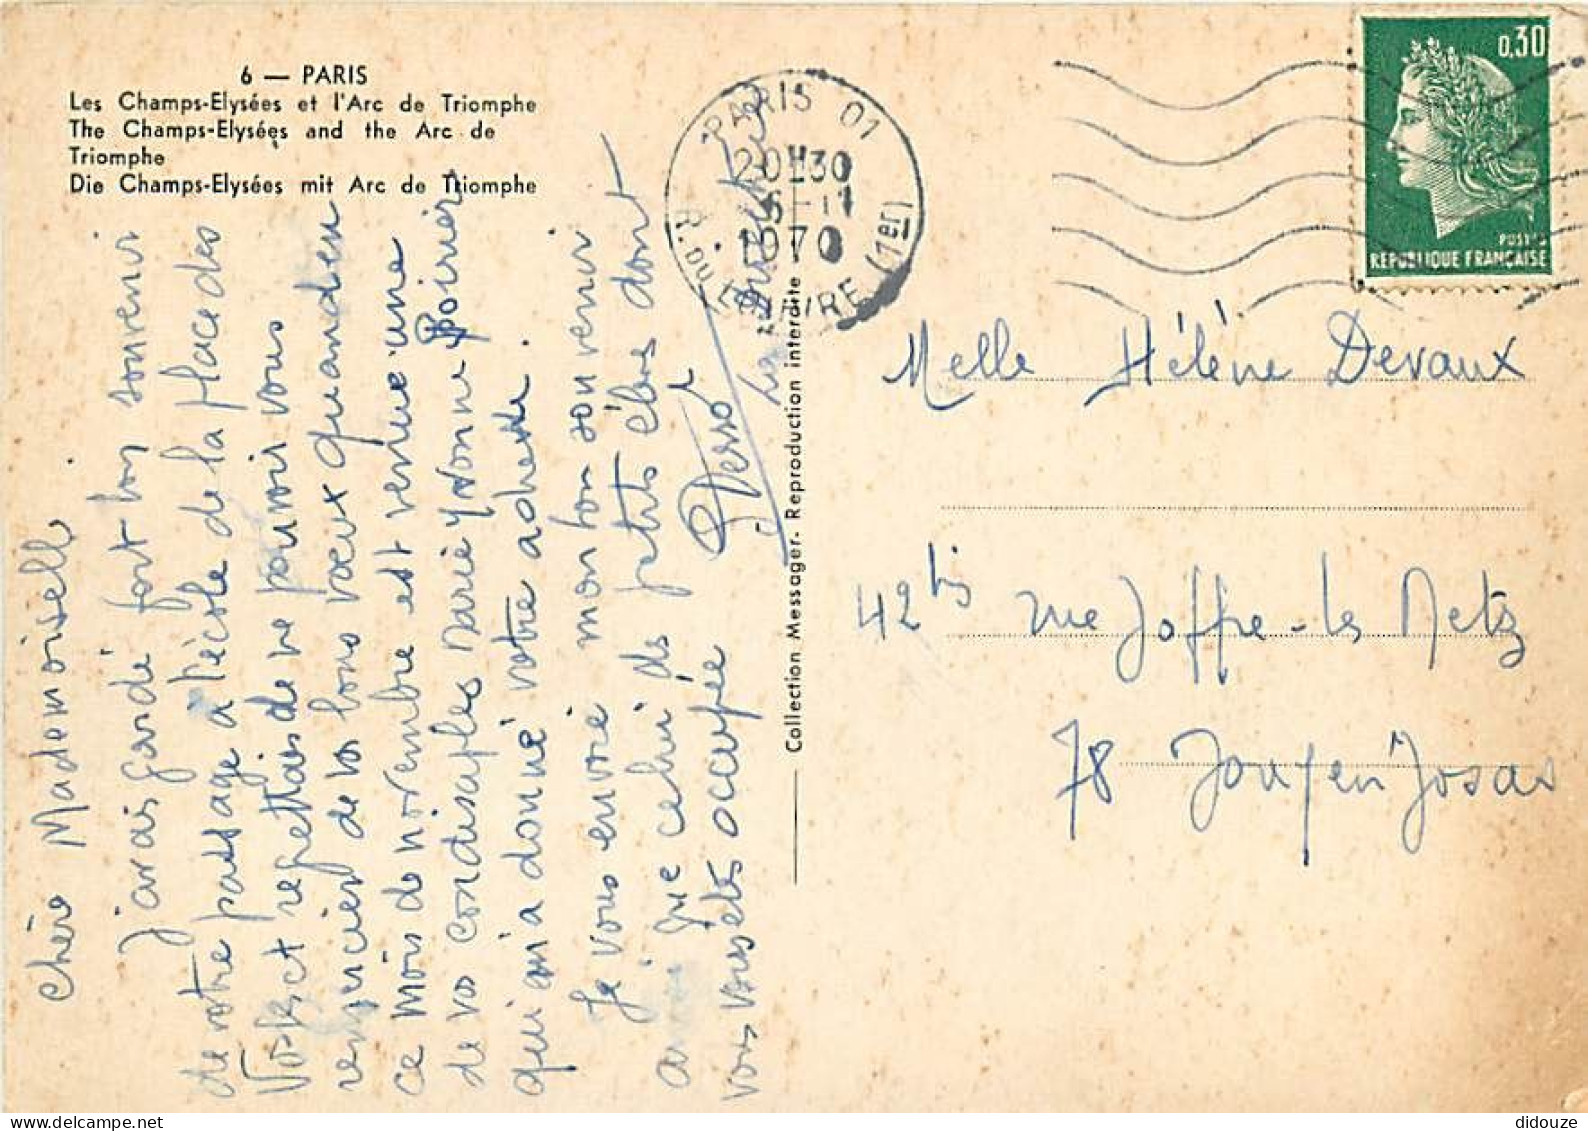 6 — PARIS
Les Champs-Elysées et l'Arc de Triomphe
The Champs-Elysées and the Arc de
Triomphe
Die Champs-Elysées mit Arc de Triomphe
Chère Mademoiselle
J'avais gardé fort bon souvenir
de votre passage à l'école de la place des
Vosges et regrettais de ne pouvoir vous
remercier de vos bons vœux quand en
ce mois de novembre est venue une
de vos condisciples Marie Yvonne Poirier
qui m'a donné votre adresse.
Je vous envoie mon bon souvenir
ainsi que celui des petits élèves dont
vous vous êtes occupée
Collection Messager - Reproduction interdite
PARIS 01
20H30
1970
R. DU LOUVRE (1er)
0,30
POSTES
REPUBLIQUE FRANÇAISE
Melle Hélène Devaux
42 bis rue Joffre - les Metz
78 Jouy en Josas
didouze